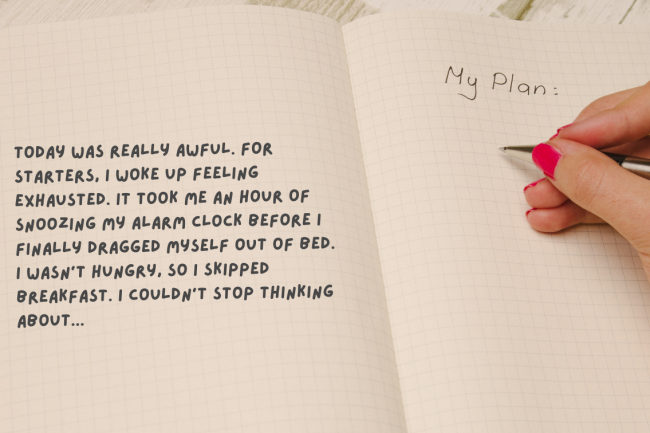 TODAY WAS REALLY AWFUL. FOR
STARTERS, I WOKE UP FEELING
EXHAUSTED. IT TOOK ME AN HOUR OF
SNOOZING MY ALARM CLOCK BEFORE I
FINALLY DRAGGED MYSELF OUT OF BED.
I WASN'T HUNGRY, SO I SKIPPED
BREAKFAST. I COULDN'T STOP THINKING
ABOUT...
My Plan: